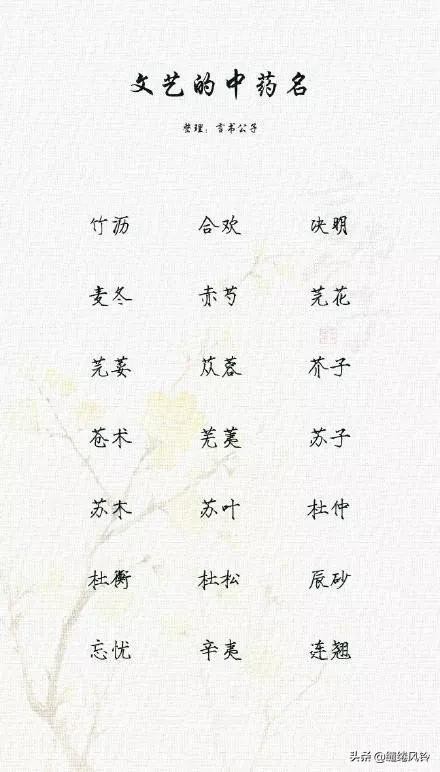 文艺的中药名
整理：言书公子
竹沥 合欢 决明
麦冬 赤芍 芫花
芫荽 苁蓉 芥子
苍术 芜荑 苏子
苏木 苏叶 杜仲
杜衡 杜松 辰砂
忘忧 辛夷 连翘
头条 @缱绻风铃